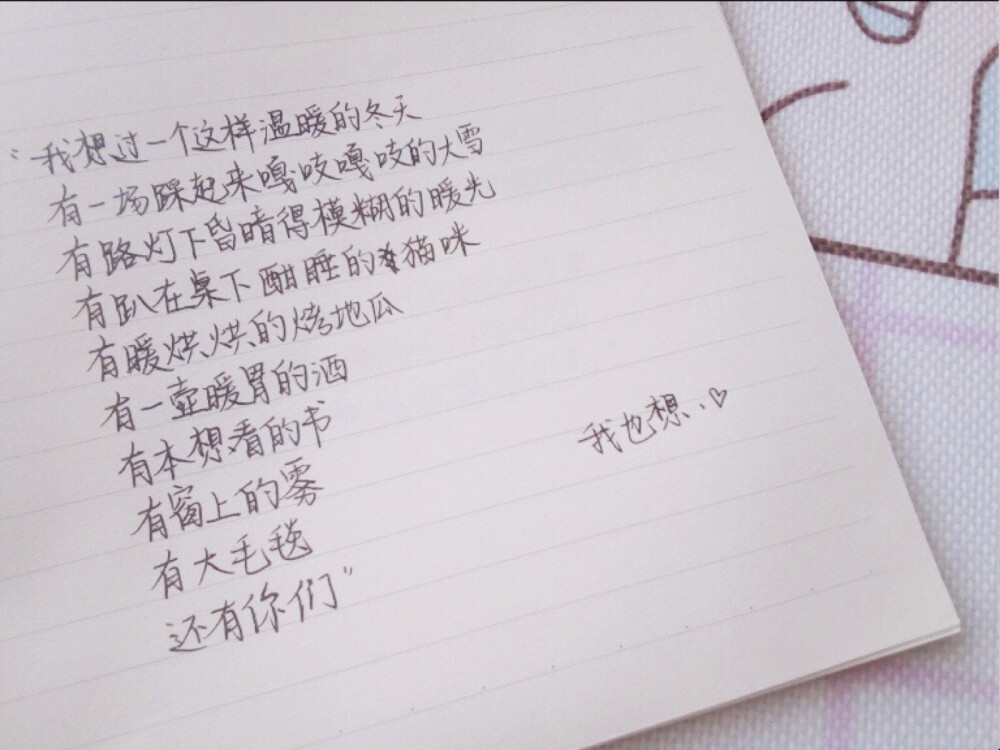 “我想过一个这样温暖的冬天
有一场踩起来嘎吱嘎吱的大雪
有路灯下昏暗得模糊的暖光
有趴在桌下酣睡的猫咪
有暖烘烘的烤地瓜
有一壶暖胃的酒
有本想看的书
有窗上的雾
有大毛毯
还有你们”
我也想..♡